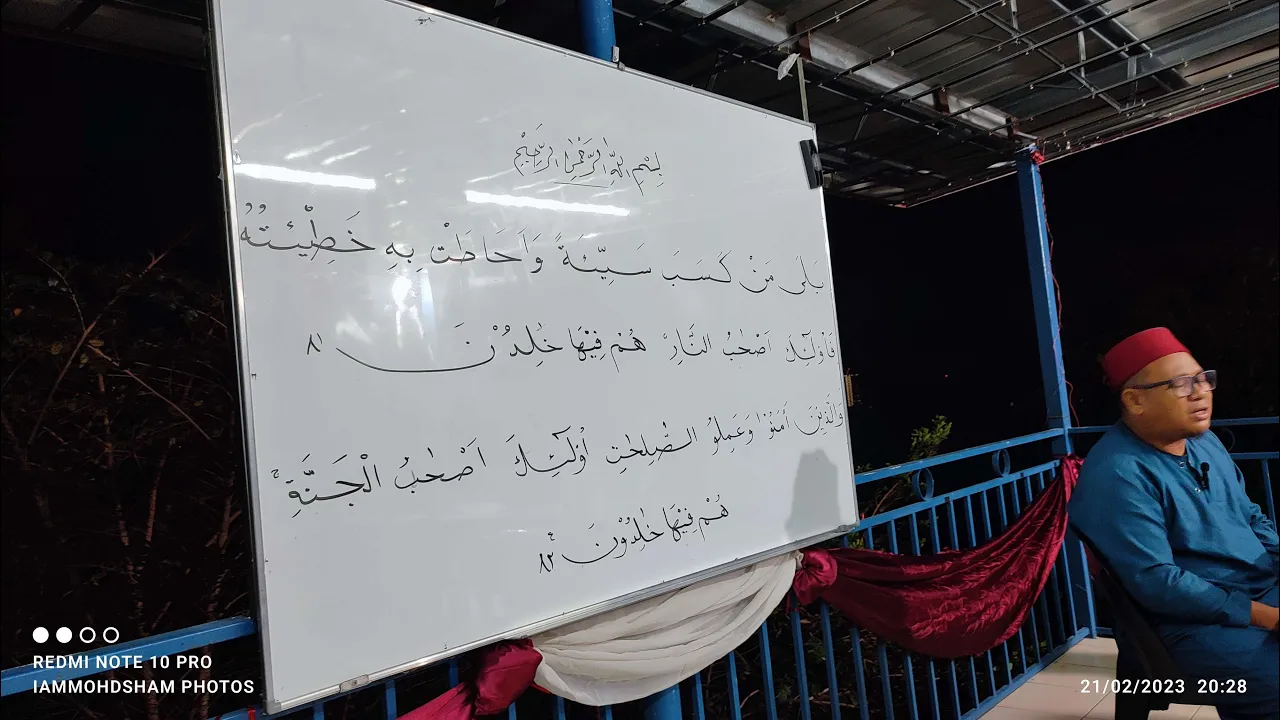 بِسْمِ اللهِ الرَّحْمٰنِ الرَّحِيْمِ
بَلَى مَنْ كَسَبَ سَيِّئَةً وَاَحَاطَتْ بِهِ خَطِيْئَتُهُ
فَاُولٰٓئِكَ اَصْحٰبُ النَّارِ هُمْ فِيْهَا خٰلِدُوْنَ ٨١
وَالَّذِيْنَ اٰمَنُوْا وَعَمِلُو الصّٰلِحٰتِ اُولٰٓئِكَ اَصْحٰبُ الْجَنَّةِ ۚ
هُمْ فِيْهَا خٰلِدُوْنَ ࣖ ٨٢
REDMI NOTE 10 PRO
IAMMOHDSHAM PHOTOS
21/02/2023 20:28